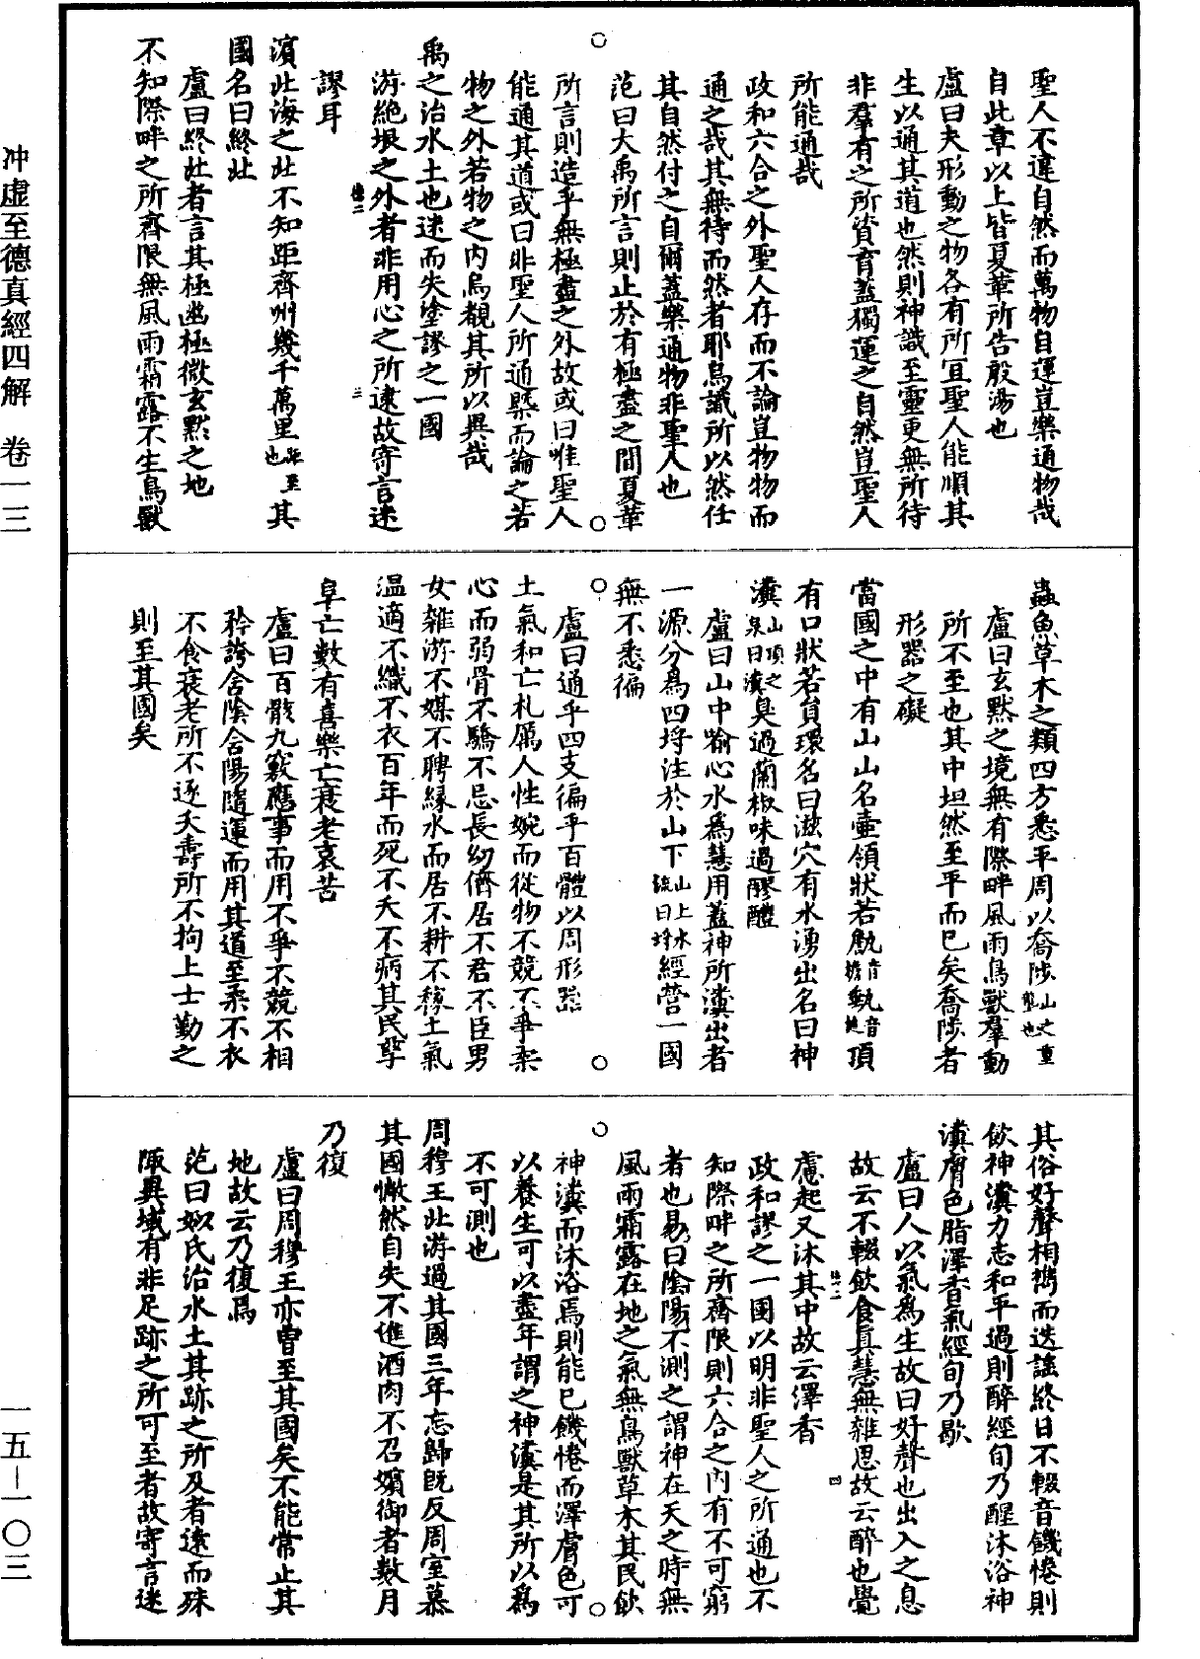 聖人不違自然而萬物自運豈樂通物哉
自此章以上皆夏革所告殷湯也
盧曰夫形動之物各有所宜聖人能順其
生以通其道也然則神識至靈更無所待
非羣有之所資育蓋獨運之自然豈聖人
所能通哉
政和六合之外聖人存而不論豈物物而
通之哉其無待而然者耶烏識所以然任
其自然付之自爾蓋樂通物非聖人也
范曰大禹所言則止於有極盡之間夏革
所言則造乎無極盡之外故或曰唯聖人
能通其道或曰非聖人所通槩而論之若
物之外若物之内烏覩其所以異哉
禹之治水土也迷而失塗謬之一國
游絶垠之外者非用心之所逮故寄言迷
謬耳
濱北海之北不知距齊州幾千萬里距至也其
國名曰終北
盧曰終北者言其極幽極微玄默之地
不知際畔之所齊限無風雨霜露不生鳥獸
蟲魚草木之類四方悉平周以喬陟山之重壟也
盧曰玄默之境無有際畔風雨鳥獸羣動
所不至也其中坦然至平而已矣喬陟者
形器之礙
當國之中有山山名壺領狀若甔甀頂
有口狀若員環名曰滋穴有水湧出名曰神
瀵山頂之泉曰瀵臭過蘭椒味過醪醴
盧曰山中喻心水爲慧用蓋神所瀵出者
一源分爲四埒注於山下山上水流曰埒經營一國
無不悉徧
盧曰通乎四支徧乎百體以周形器
土氣和亡札厲人性婉而從物不競不爭柔
心而弱骨不驕不忌長幼儕居不君不臣男
女雜游不媒不聘緣水而居不耕不稼土氣
温適不織不衣百年而死不夭不病其民孳
阜亡數有喜樂亡衰老哀苦
盧曰百骸九竅應事而用不爭不競不相
矜誇舍陰含陽隨運而用其道至柔不衣
不食衰老所不逐夭壽所不拘上士勤之
則至其國矣
其俗好聲相攜而迭謡終日不輟音饑惓則
飲神瀵力志和平過則醉經旬乃醒沐浴神
瀵膚色脂澤香氣經旬乃歇
盧曰人以氣爲生故曰好聲也出入之息
故云不輟飲食眞慧無雜思故云醉也覺
慮起又沐其中故云澤香
政和謬之一國以明非聖人之所通也不
知際畔之所齊限則六合之内有不可窮
者也易曰陰陽不測之謂神在天之時無
風雨霜露在地之氣無鳥獸草木其民飲
神瀵而沐浴焉則能已饑惓而澤膚色可
以養生可以盡年謂之神瀵是其所以爲
不可測也
周穆王北游過其國三年忘歸旣反周室慕
其國惝然自失不進酒肉不召嬪御者數月
乃復
盧曰周穆王亦曾至其國矣不能常止其
地故云乃復焉
范曰姒氏治水土其跡之所及者遠而殊
陬異域有非足跡之所可至者故寄言迷
冲虛至德真經四解　卷一三
一五－一〇三